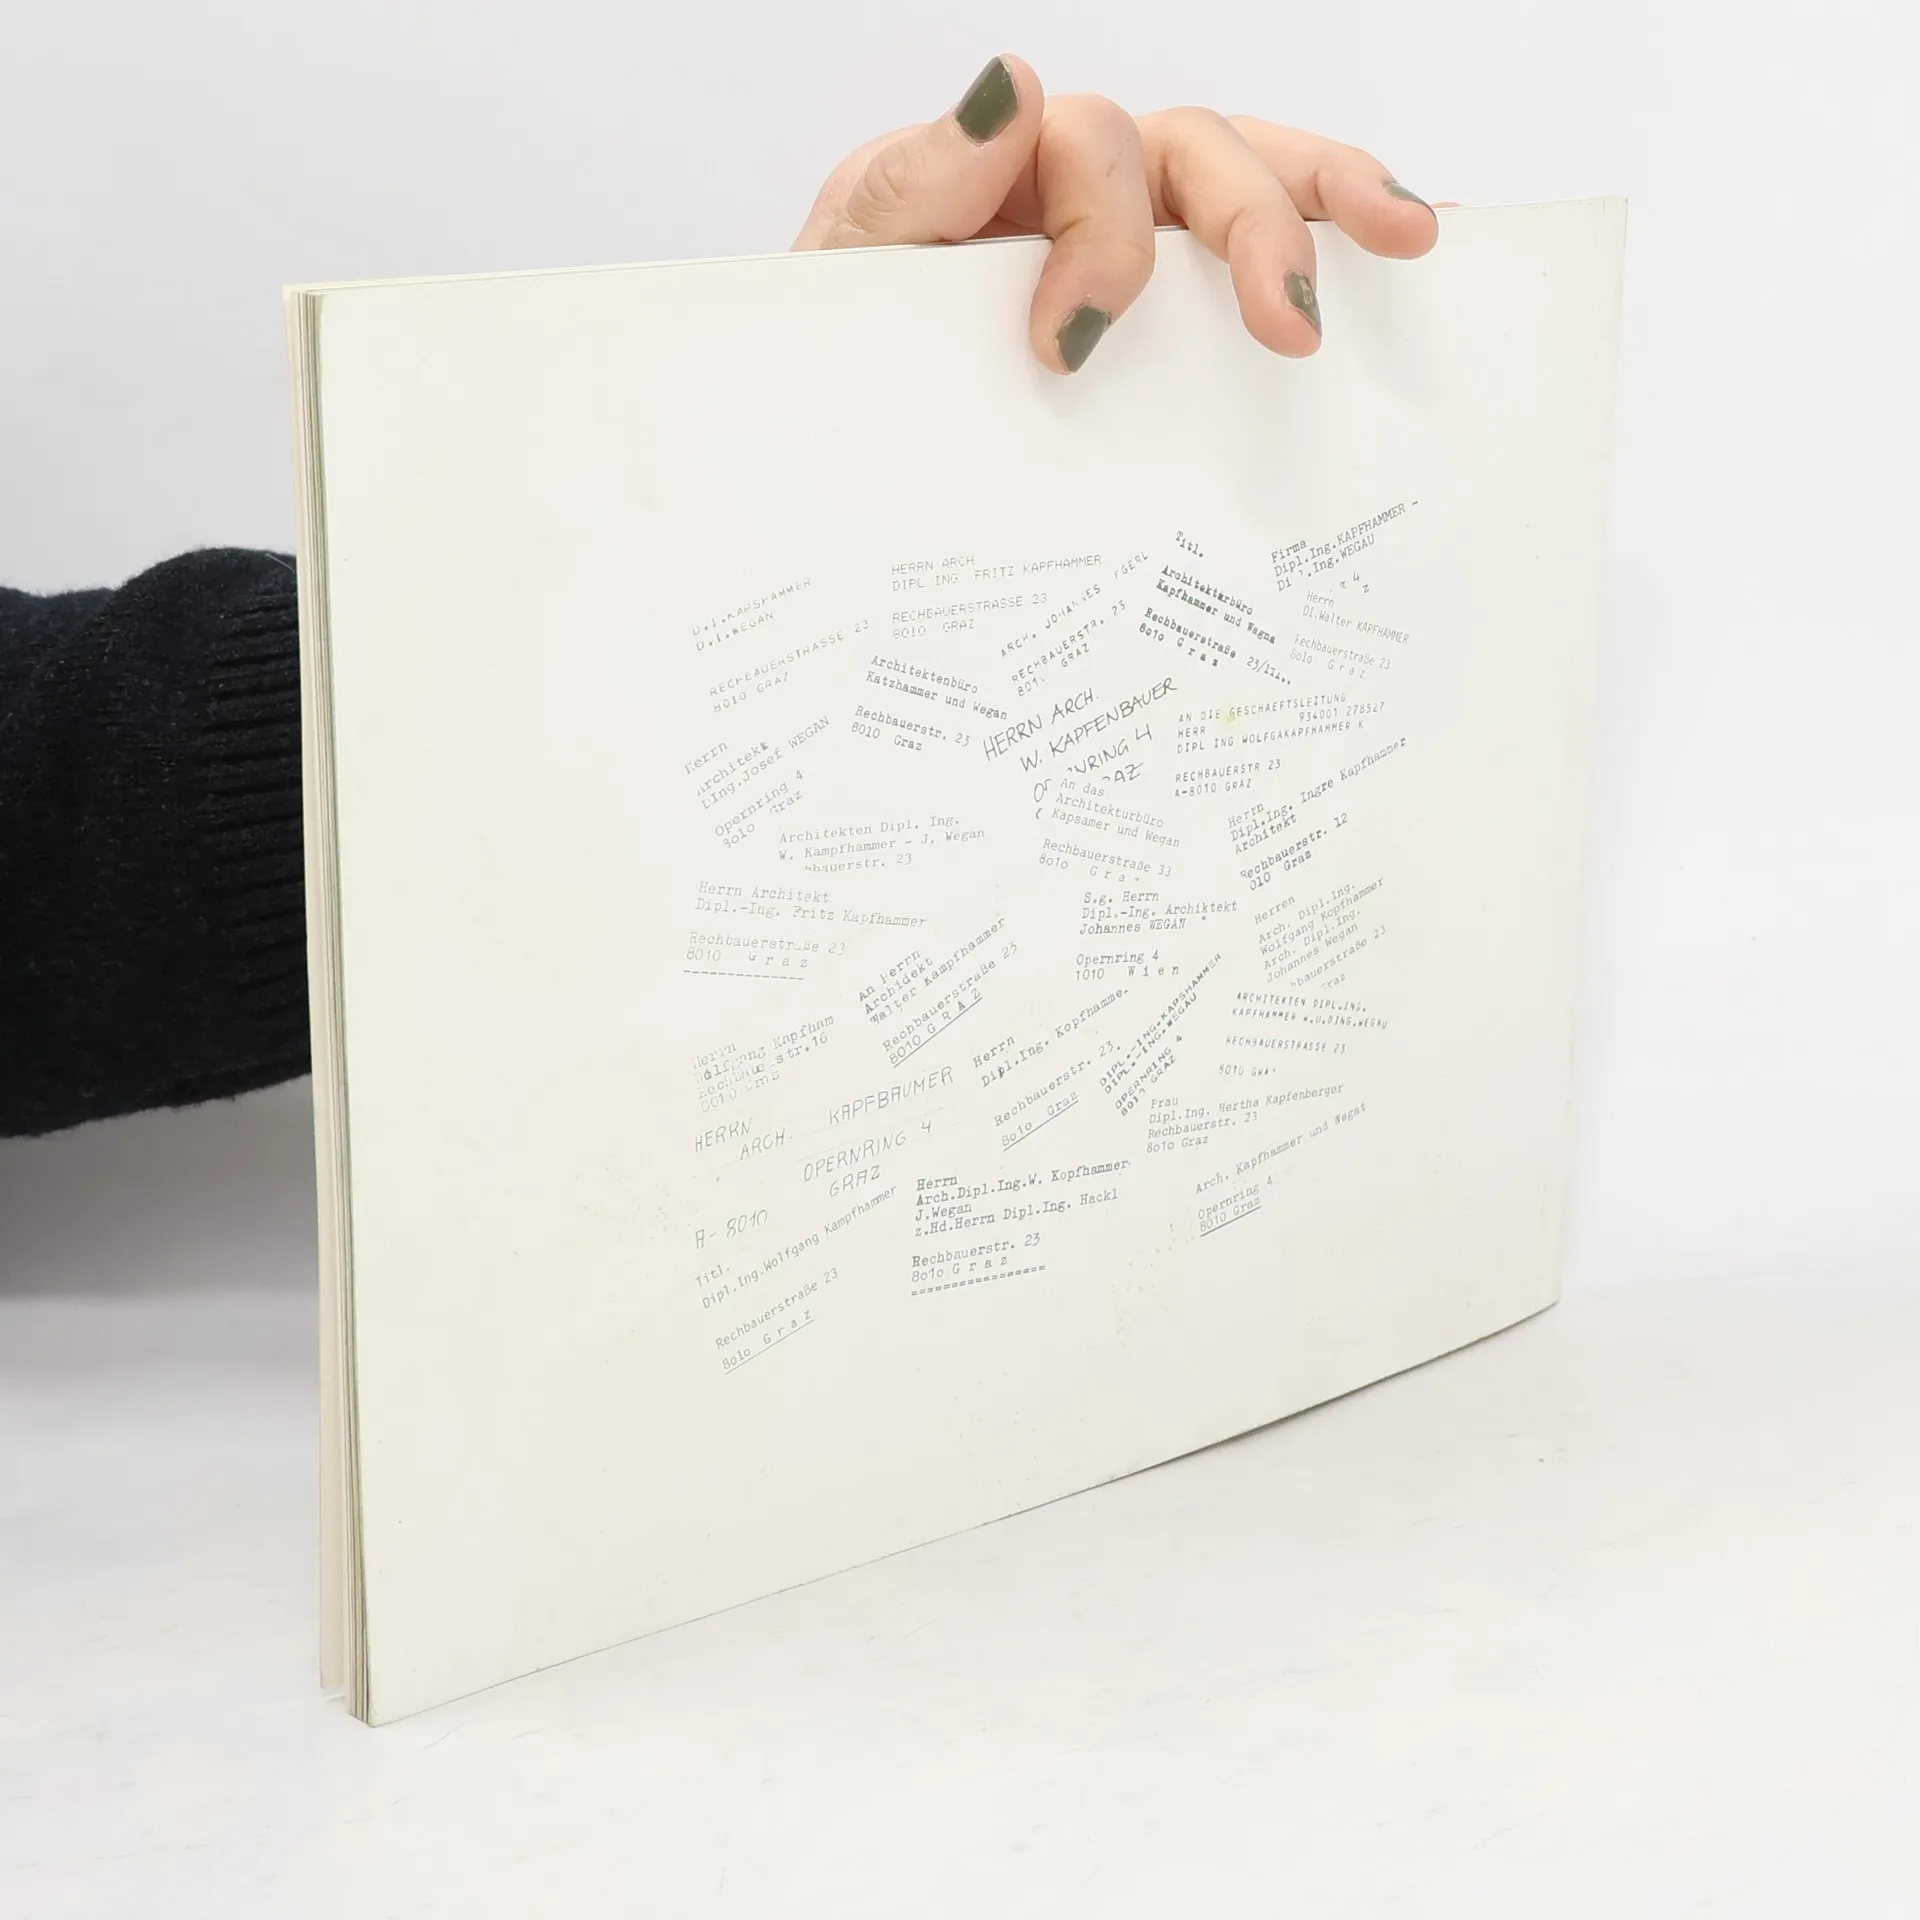 D.I.KAPSHAMMER
D.I.WEGAN
RECHBAUERSTRASSE 23
8010 GRAZ
HERRN ARCH
DIPL ING. FRITZ KAPFHAMMER
RECHBAUERSTRASSE 23
8010 GRAZ
ARCH. JOHANNES
RECHBAUERSTR. 23
GRAZ
Titl.
Architekturbüro
Kapfhammer und Wagna
Rechbauerstraße 23/III..
8010 G r a z
Firma
Dipl.Ing.KAPFHAMMER -
Di .Ing.WEGAU
Herrn
DI.Walter KAPFHAMMER
Rechbauerstraße 23
8010 G r a z
Architektenbüro
Katzhammer und Wegan
Rechbauerstr. 23
8010 Graz
HERRN ARCH.
W. KAPFENBAUER
NRING 4
AZ
AN DIE GESCHAEFTSLEITUNG
HERR 934001 278527
DIPL ING WOLFGAKAPFHAMMER K
RECHBAUERSTR 23
A-8010 GRAZ
Herrn
Architekt
Ing.Josef WEGAN
Opernring 4
8010 Graz
Architekten Dipl. Ing.
W. Kampfhammer - J. Wegan
hbauerstr. 23
An das
Architekturbüro
Kapsamer und Wegan
Rechbauerstraße 33
8010 G r a z
Herrn
Dipl.Ing. Ingre Kapfhammer
Architekt
Rechbauerstr. 12
010 Graz
Herrn Architekt
Dipl.-Ing. Fritz Kapfhammer
Rechbauerstraße 23
8010 G r a z
An Herrn
Archidekt
Walter Kampfhammer
Rechbauerstraße 23
8010 G R A Z
S.g. Herrn
Dipl.-Ing. Archiktekt
Johannes WEGAN
Opernring 4
1010 W i e n
Herren
Arch. Dipl.Ing.
Wolfgang Kopfhammer
Arch. Dipl.Ing.
Johannes Wegan
hbauerstraße 23
Graz
Herrn
Wolfgang Kapfham
str.16
Herrn
Dipl.Ing. Kopfhamme
Rechbauerstr. 23.
8010 Graz
DIPL.-ING.KAPSHAMMER
DIPL.-ING.WEGAU
OPERNRING 4
8010 GRAZ
ARCHITEKTEN DIPL.ING.
KAPFHAMMER W.U.DING.WEGAU
RECHBAUERSTRASSE 23
8010 GRA
HERRN
ARCH. KAPFBAUMER
OPERNRING 4
GRAZ
A- 8010
Frau
Dipl.Ing. Hertha Kapfenberger
Rechbauerstr. 23
8010 Graz
Arch. Kapfhammer und Wegat
Opernring 4
8010 Graz
Herrn
Arch.Dipl.Ing.W. Kopfhammer
J.Wegan
z.Hd.Herrn Dipl.Ing. Hackl
Rechbauerstr. 23
8010 G r a z
Titl.
Dipl.Ing.Wolfgang Kampfhammer
Rechbauerstraße 23
8010 G r a z